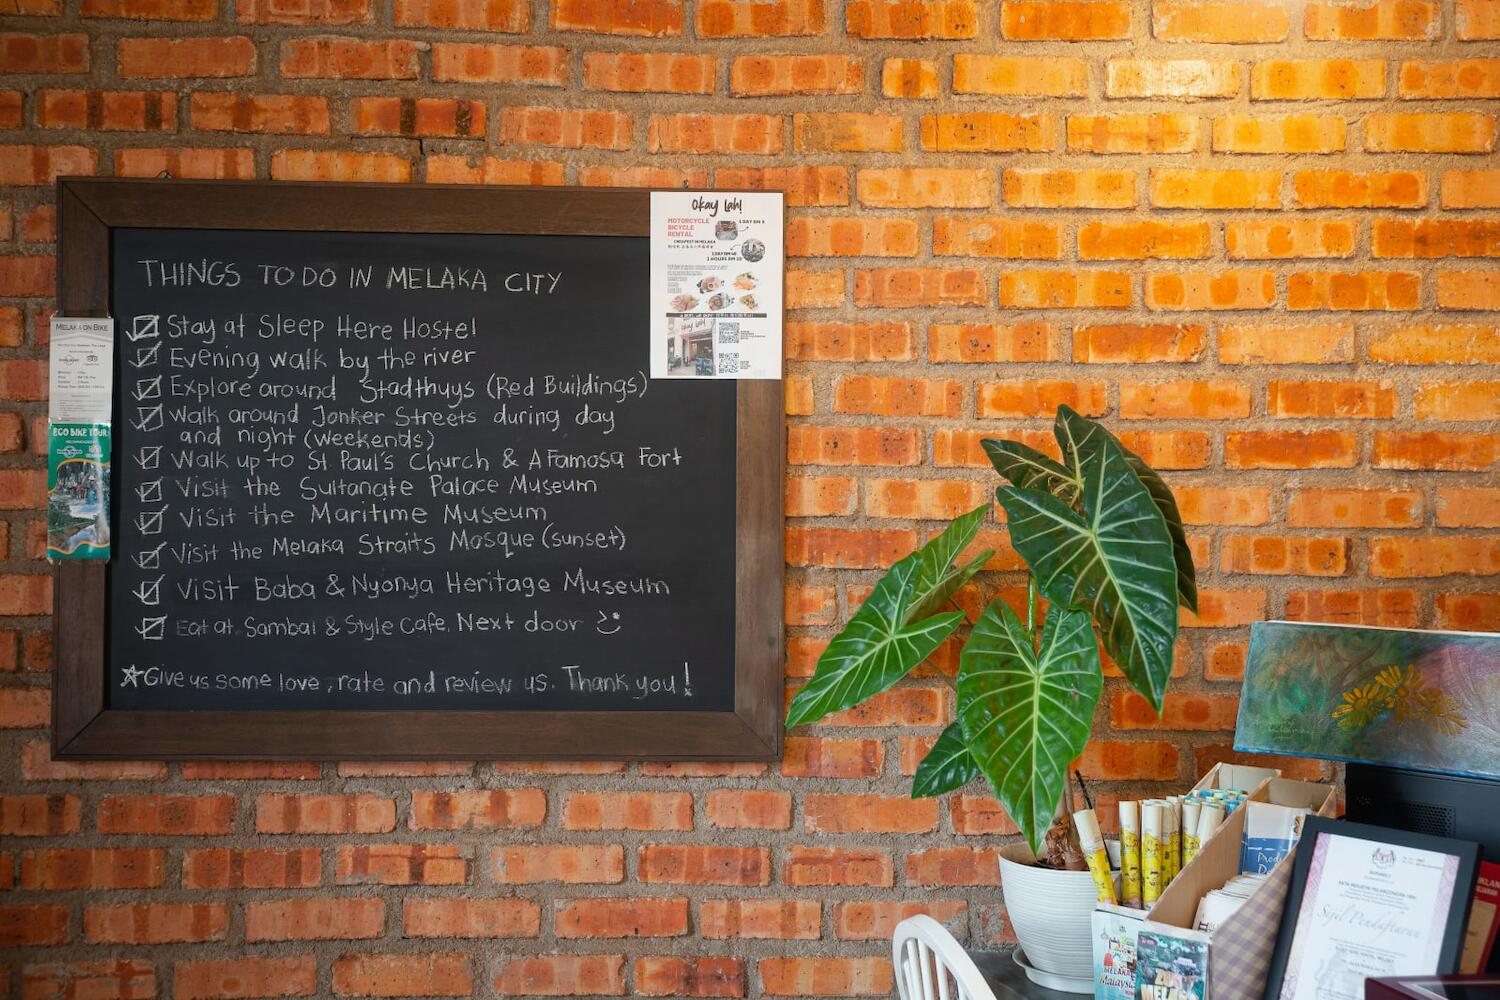 THINGS TO DO IN MELAKA CITY
Stay at Sleep Here Hostel
Evening walk by the river
Explore around Stadthuys (Red Buildings)
Walk around Jonker Streets during day
and night (weekends)
Walk up to St. Paul's Church & A Famosa Fort
Visit the Sultanate Palace Museum
Visit the Maritime Museum
Visit the Melaka Straits Mosque (sunset)
Visit Baba & Nyonya Heritage Museum
Eat at Sambal & Style Cafe, Next door
Give us some love, rate and review us. Thank you!
Okay Lah!
MOTORCYCLE
BICYCLE
RENTAL
CHEAPEST IN MELAKA
MELAKA ON BIKE
ECO BIKE TOUR
Sijil Pendaftaran